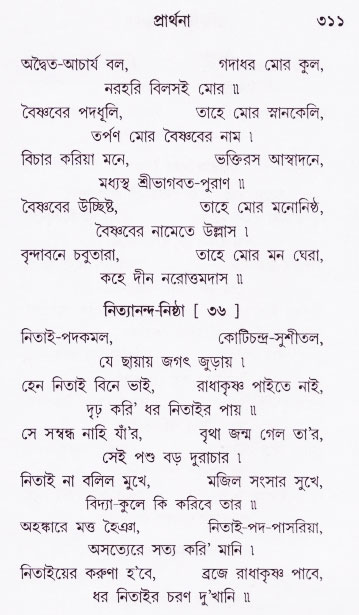 প্রার্থনা ৩১১
অদ্বৈত-আচার্য বল, গদাধর মোর কুল,
নরহরি বিলসই মোর ॥
বৈষ্ণবের পদধূলি, তাহে মোর স্নানকেলি,
তর্পণ মোর বৈষ্ণবের নাম ।
বিচার করিয়া মনে, ভক্তিরস আস্বাদনে,
মধ্যস্থ শ্রীভাগবত-পুরাণ ॥
বৈষ্ণবের উচ্ছিষ্ট, তাহে মোর মনোনিষ্ঠ,
বৈষ্ণবের নামেতে উল্লাস ।
বৃন্দাবনে চবুতারা, তাহে মোর মন ঘেরা,
কহে দীন নরোত্তমদাস ॥
নিত্যানন্দ-নিষ্ঠা [ ৩৬ ]
নিতাই-পদকমল, কোটিচন্দ্র-সুশীতল,
যে ছায়ায় জগৎ জুড়ায় ।
হেন নিতাই বিনে ভাই, রাধাকৃষ্ণ পাইতে নাই,
দৃঢ় করি' ধর নিতাইর পায় ॥
সে সম্বন্ধ নাহি যাঁ'র, বৃথা জন্ম গেল তা'র,
সেই পশু বড় দুরাচার ।
নিতাই না বলিল মুখে, মজিল সংসার সুখে,
বিদ্যা-কুলে কি করিবে তার ॥
অহঙ্কারে মত্ত হৈঞা, নিতাই-পদ-পাসরিয়া,
অসত্যেরে সত্য করি' মানি ।
নিতাইয়ের করুণা হ'বে, ব্রজে রাধাকৃষ্ণ পাবে,
ধর নিতাইর চরণ দু'খানি ॥